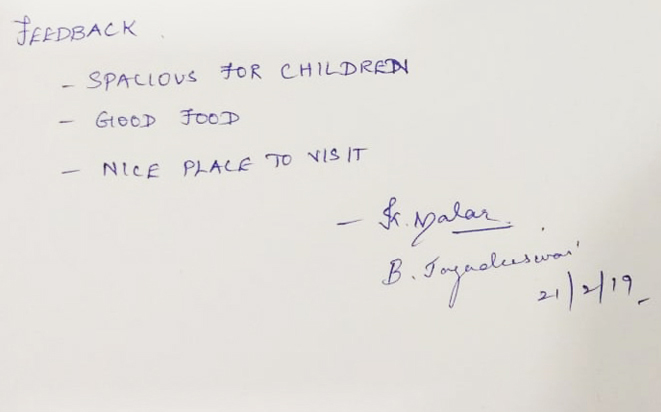 FEEDBACK
- SPACIOUS FOR CHILDREN
- GOOD FOOD
- NICE PLACE TO VISIT
- K. Malar
B. Jagadeeswari
21/2/19